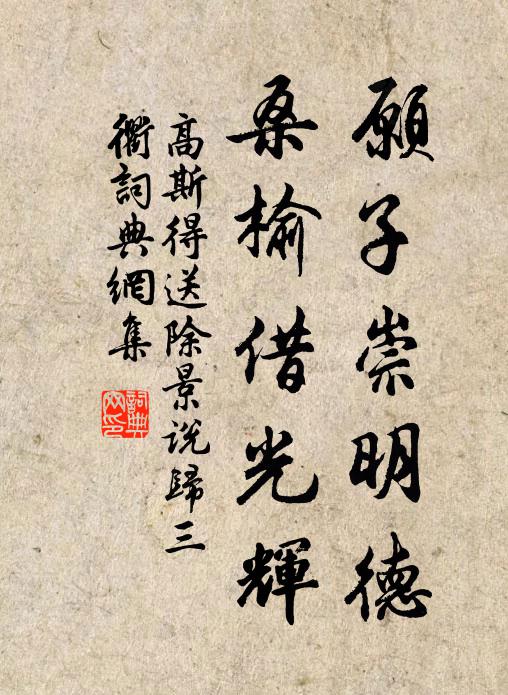 願子崇明德
桑榆借光輝
高斯得送除景说歸三
衢詞典網集
詞典
网印